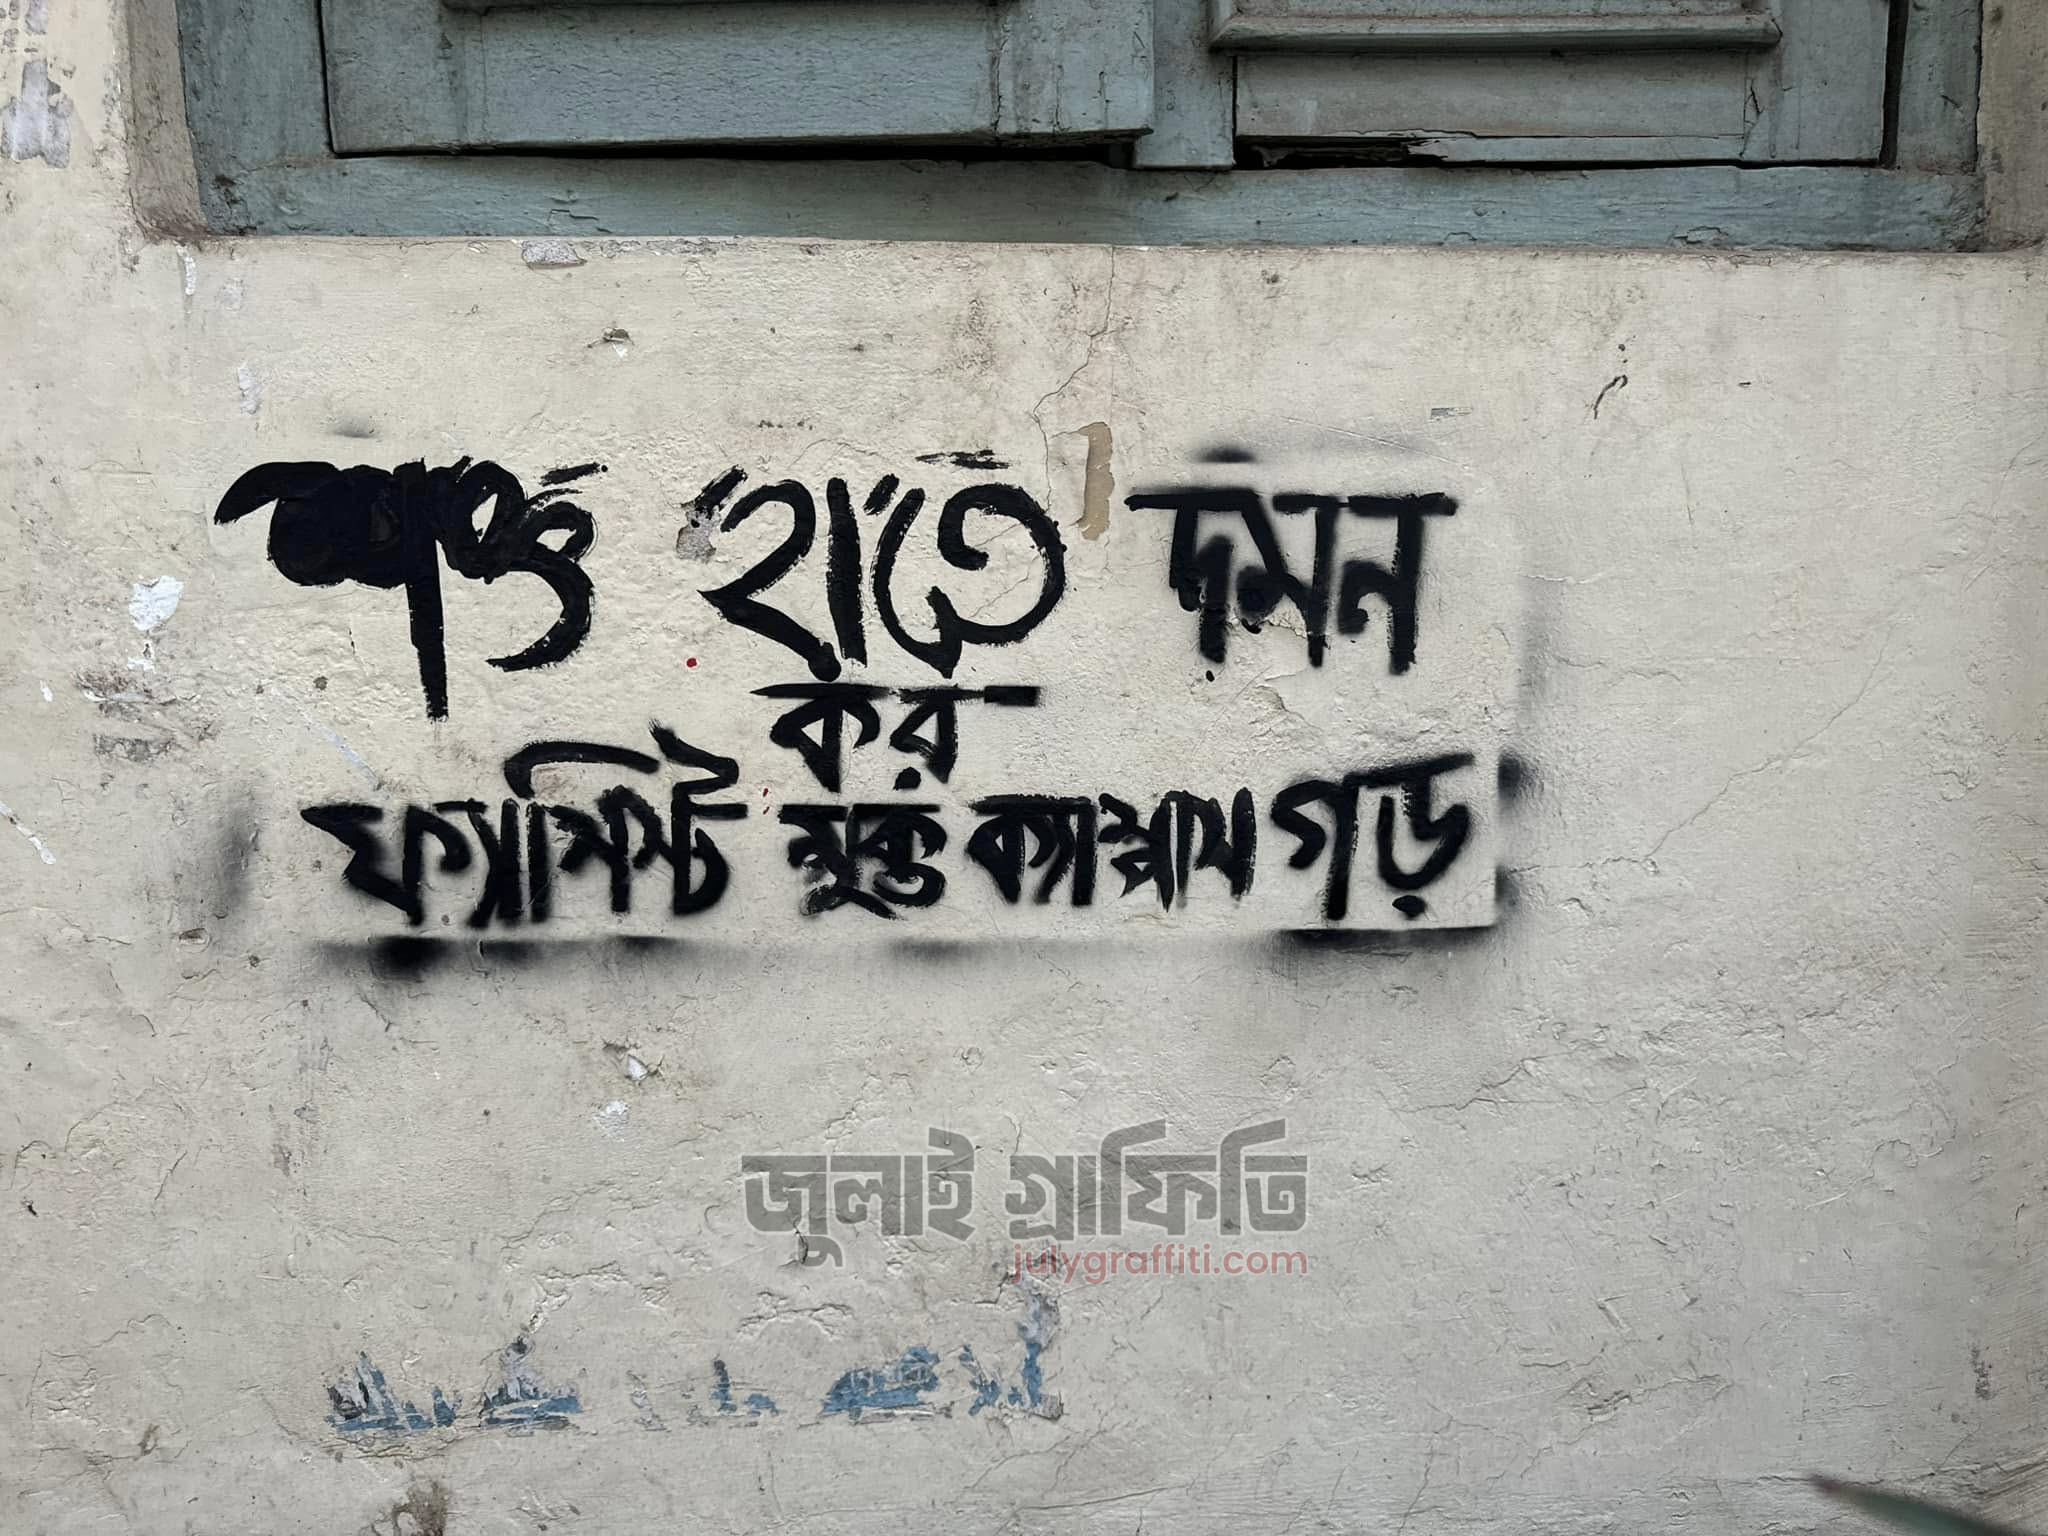 শক্ত হাতে দমন
কর
ফ্যাসিস্ট মুক্ত ক্যাম্পাস গড়
জুলাই গ্রাফিতি
julygraffiti.com